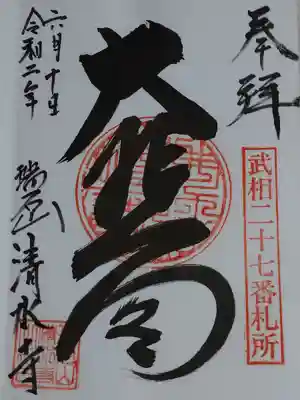 奉拝
武相二十七番札所
大悲閣
六月十日
令和二年
瑞石山
清水寺